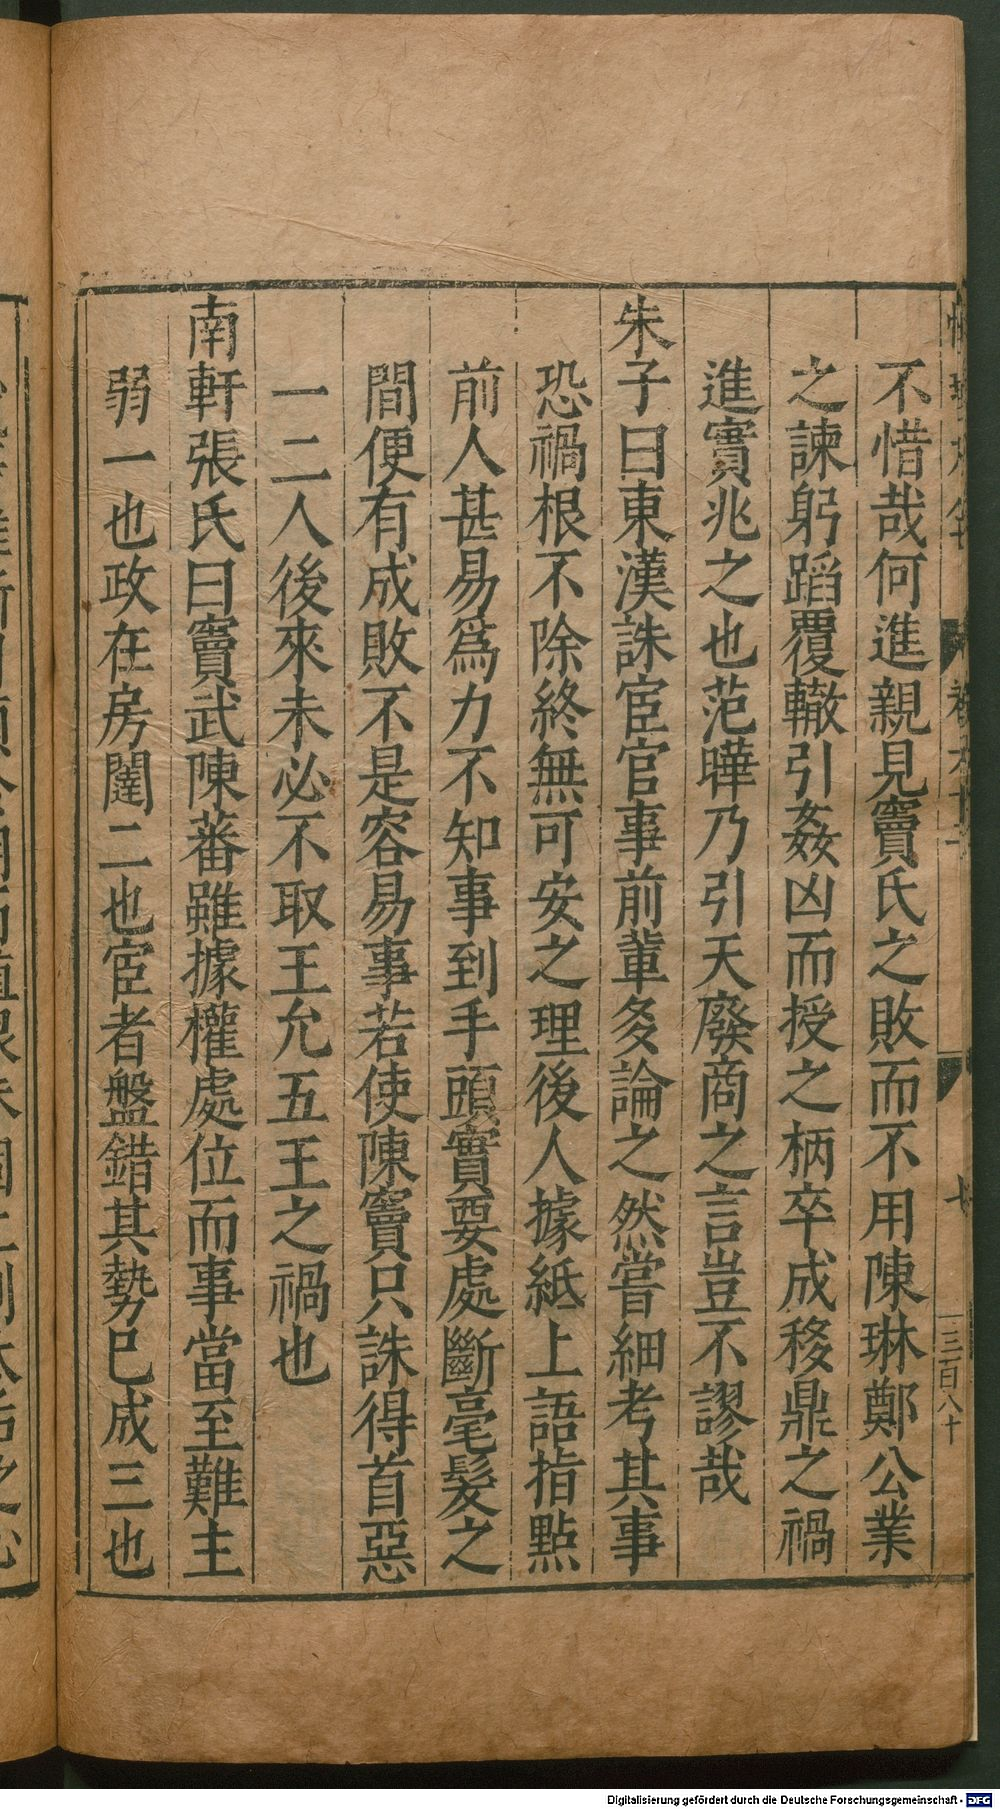 不惜哉何進親見竇氏之敗而不用陳琳鄭公業
之諫躬蹈覆轍引姦凶而授之柄卒成移鼎之禍
進實兆之也范曄乃引天廢商之言豈不謬哉
朱子曰東漢誅宦官事前輩多論之然嘗細考其事
恐禍根不除終無可安之理後人據紙上語指點
前人甚易爲力不知事到手頭實要處斷毫髮之
間便有成敗不是容易事若使陳竇只誅得首惡
一二人後來未必不取王允五王之禍也
南軒張氏曰竇武陳蕃雖據權處位而事當至難主
弱一也政在房闥二也宦者盤錯其勢已成三也
三百八十
Digitalisierung gefördert durch die Deutsche Forschungsgemeinschaft - DFG